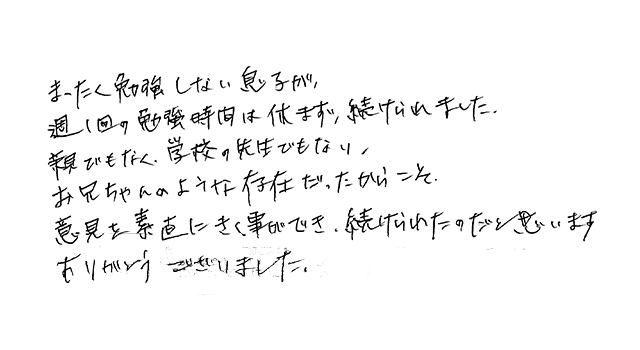 まったく勉強しない息子が、
週1回の勉強時間は休まず、続けられました。
親でもなく、学校の先生でもない、
お兄ちゃんのような存在だったからこそ、
意見を素直にきく事ができ、続けられたのだと思います
ありがとうございました。